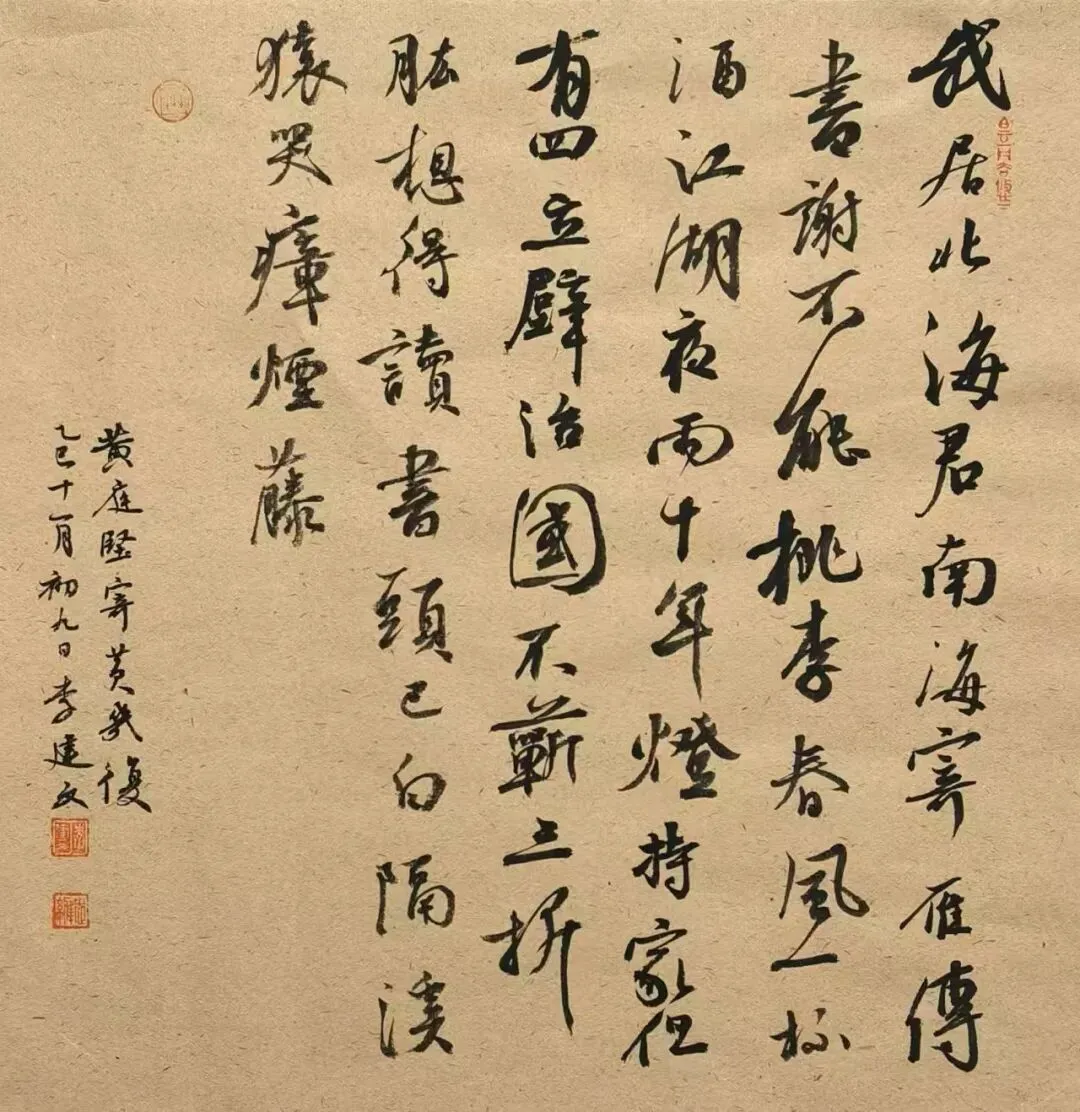 我居北海君南海寄雁傳
書謝不能桃李春風一杯
酒江湖夜雨十年燈持家但
有四立壁治國不蘄三折
肱想得讀書頭已白隔溪
猿哭瘴煙藤
黄庭堅寄黄幾復
乙巳十一月初九日李建文